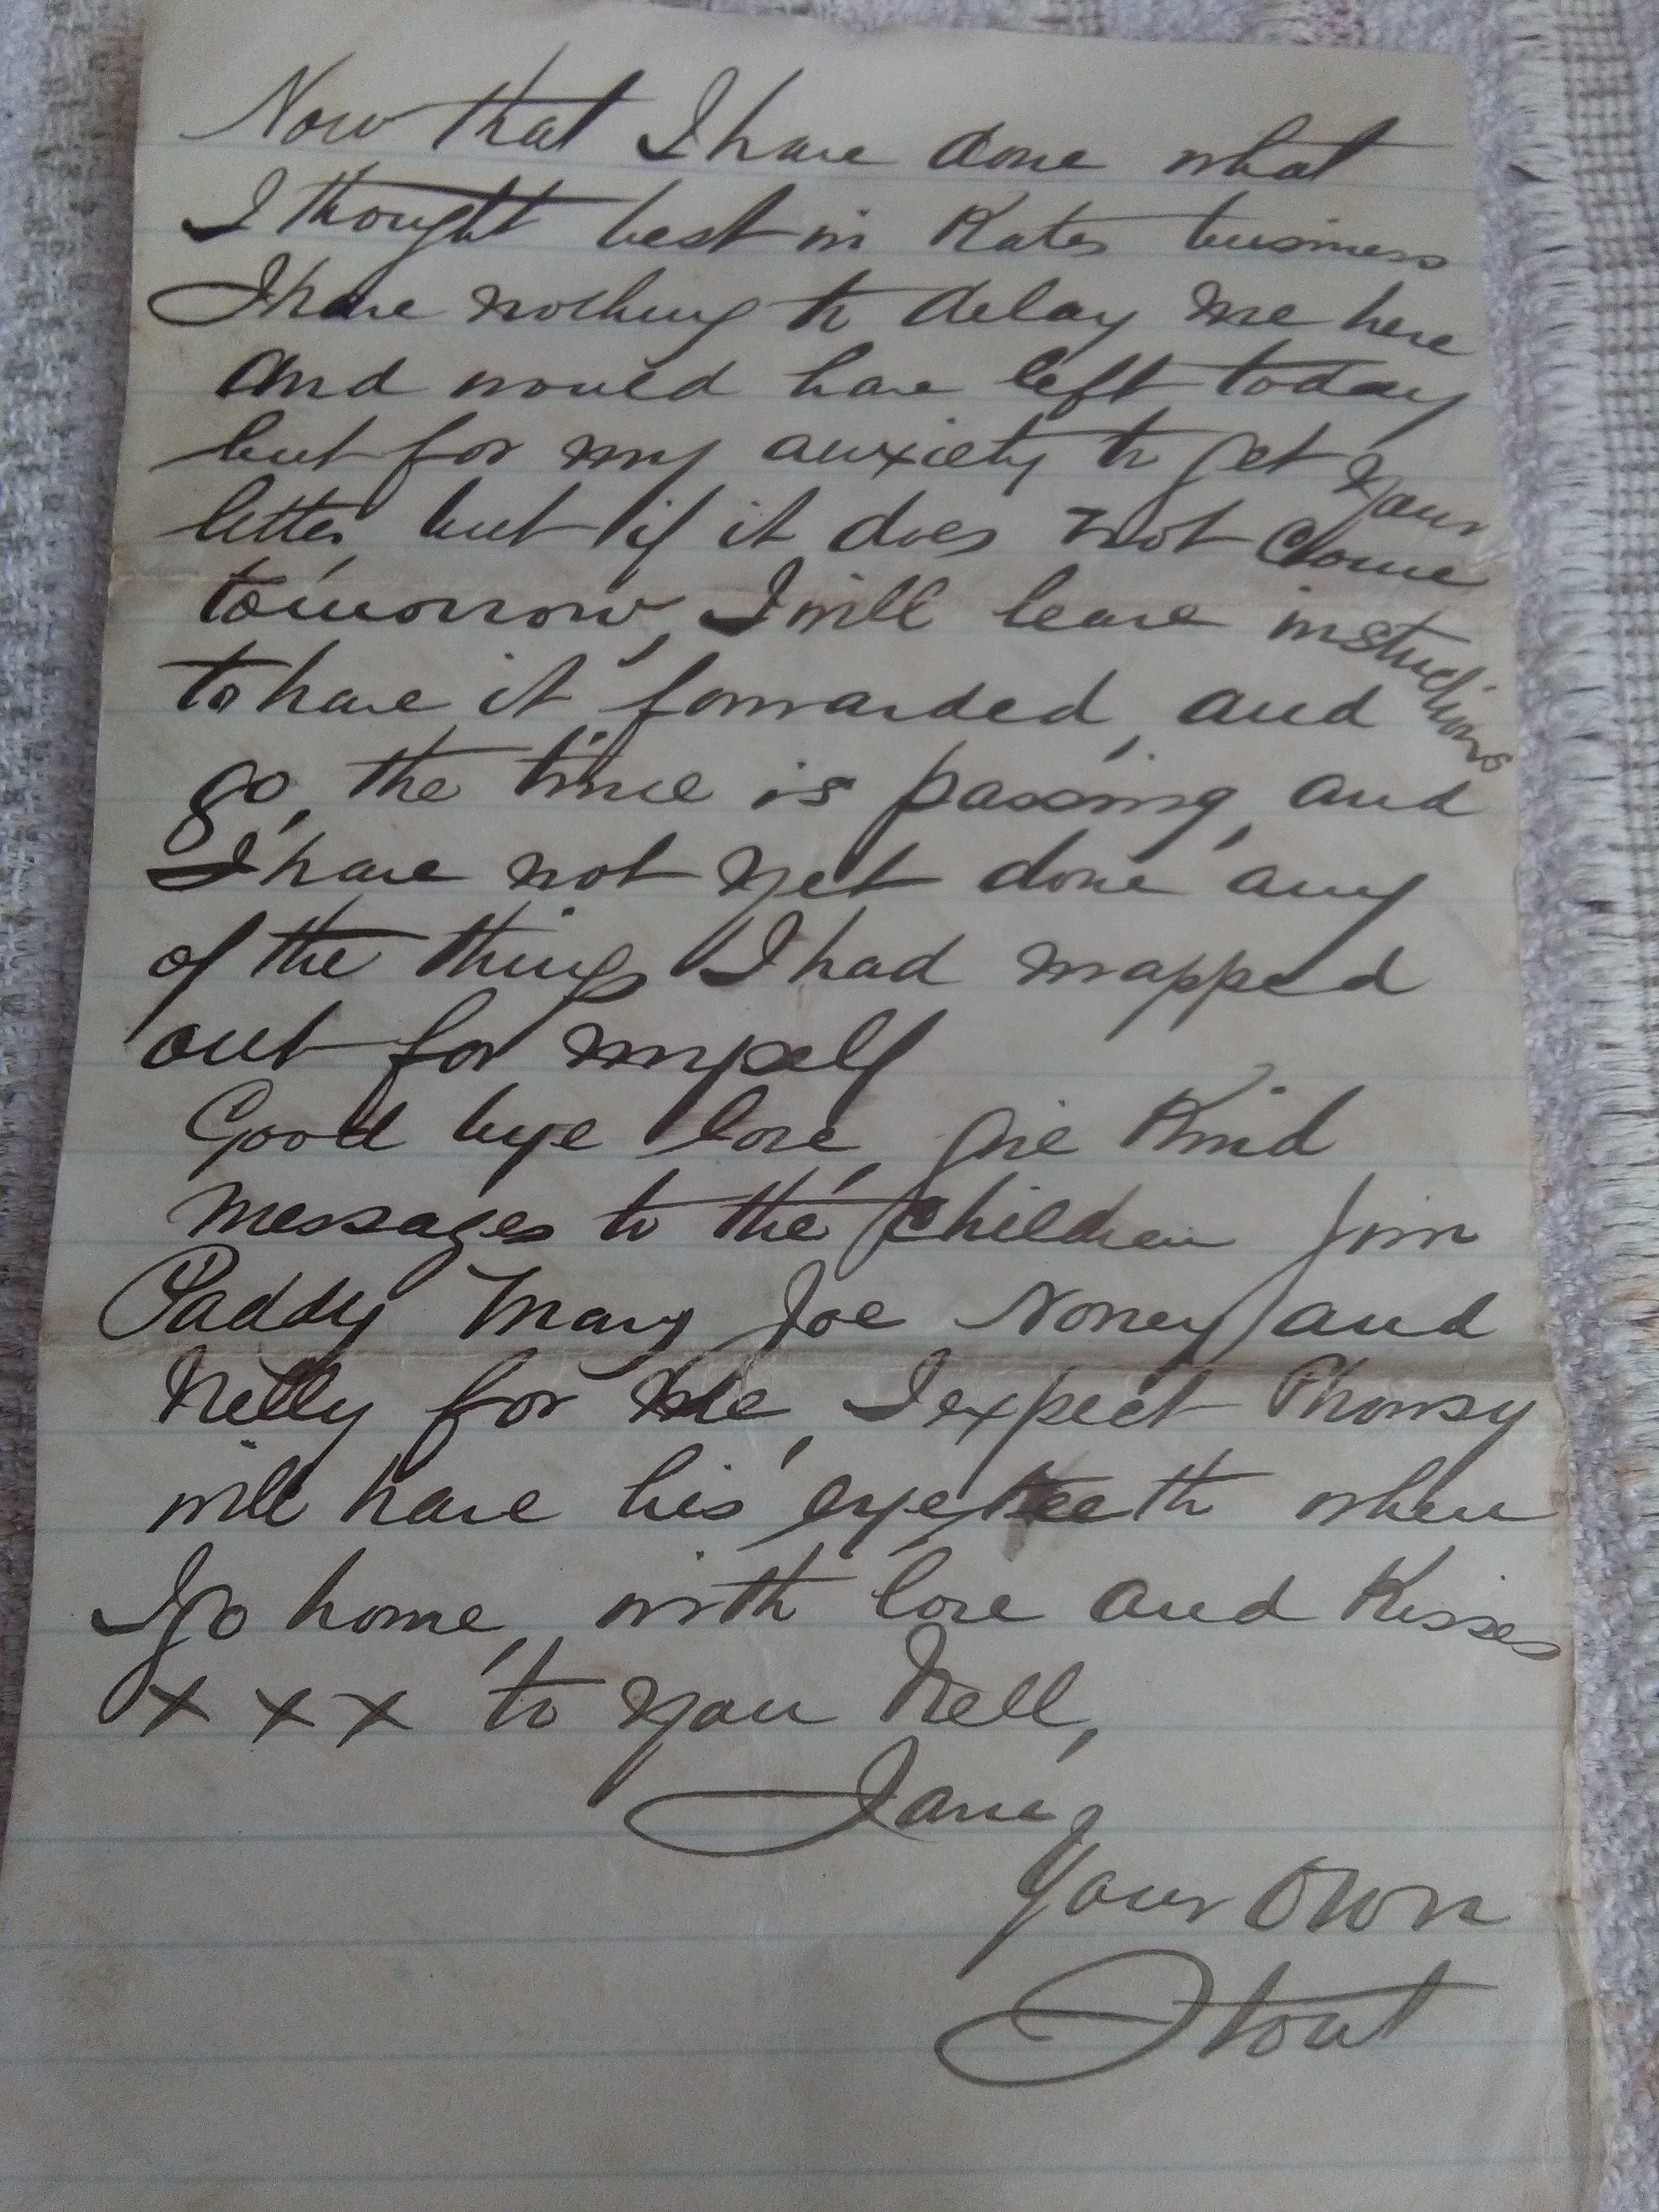 Now that I have done what
I thought best in Kates business
I have nothing to delay me here
and would have left today
but for my anxiety to get your
letter but if it does not come
tomorrow, I will leave instructions
to have it forwarded, and
go, the time is passing, and
I have not yet done any
of the things I had mapped
out for myself
Good bye love, give Kind
messages to the children Jim
Paddy Mary Joe Noney and
Nelly for me, I expect Phonsy
will have his eyeteeth when
I go home, with love and Kisses
x x x to you Nell,
I am,
Your Own
Stout